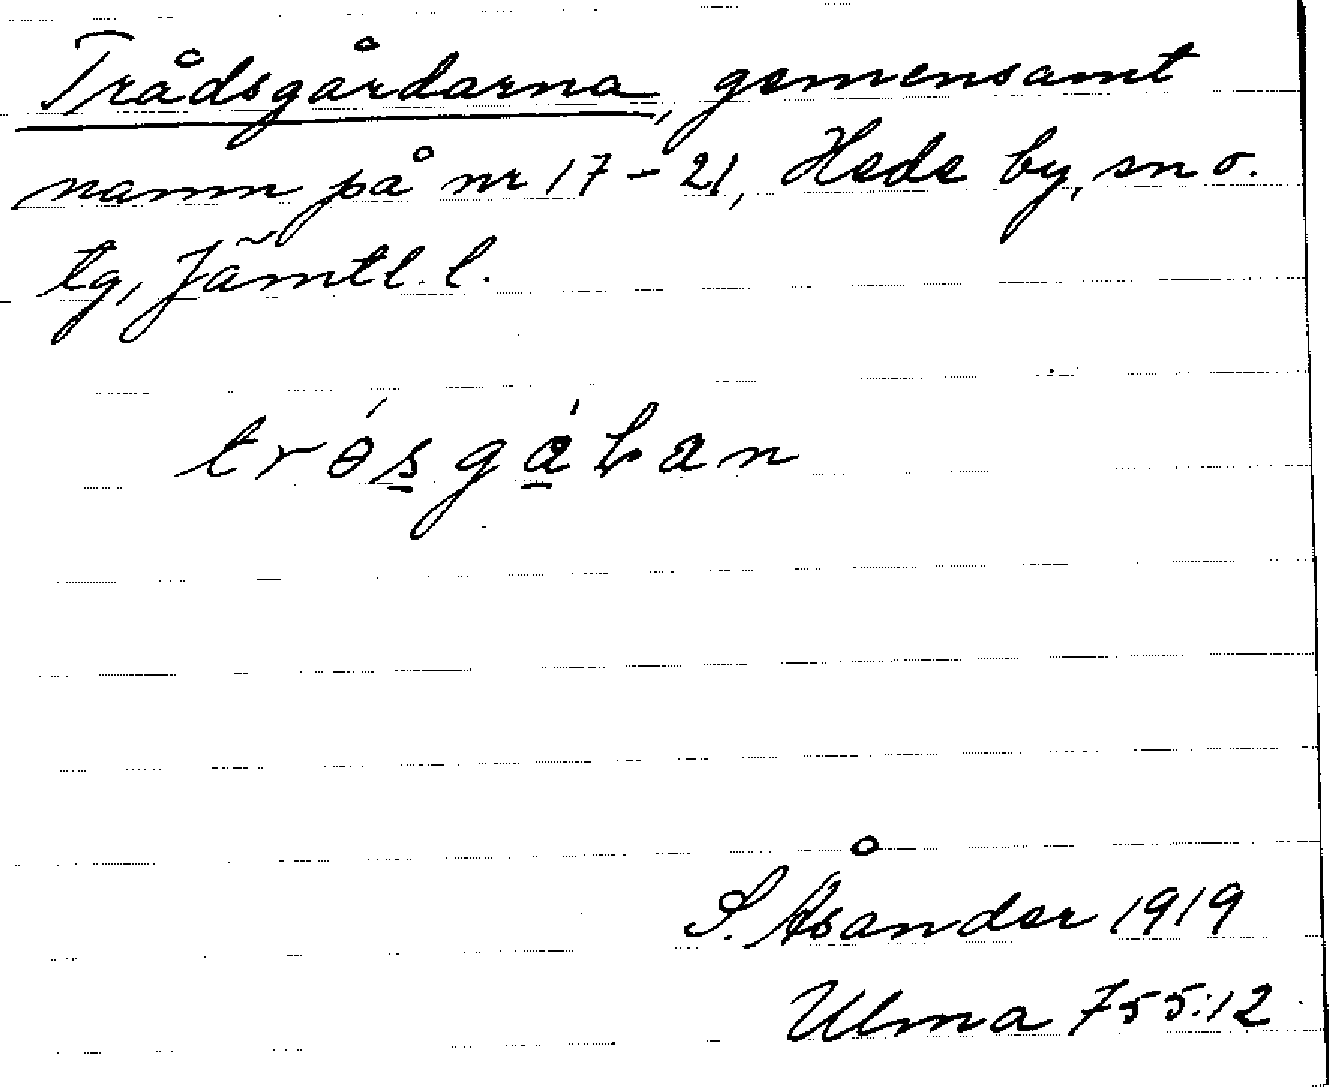 Trådsgårdarna, gemensamt
namn på nr 17-21, Hede by, sn o.
tg, Jämtl. l.
S. Åsander 1919
Ulma 755:12